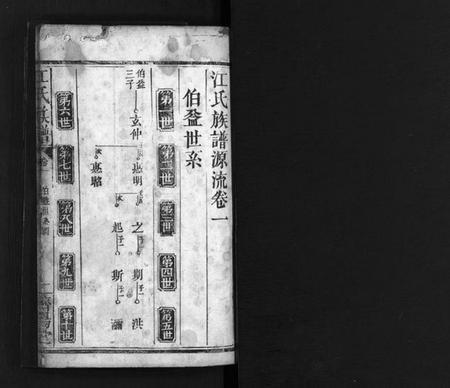 江氏族譜源流卷一
伯益世系
第一世
第二世
第三世
第四世
第五世
伯益
三子
玄仲
惠明
之
期
洪
起
斯
惠駱
第六世
第七世
第八世
第九世
第十世
江氏族譜
卷